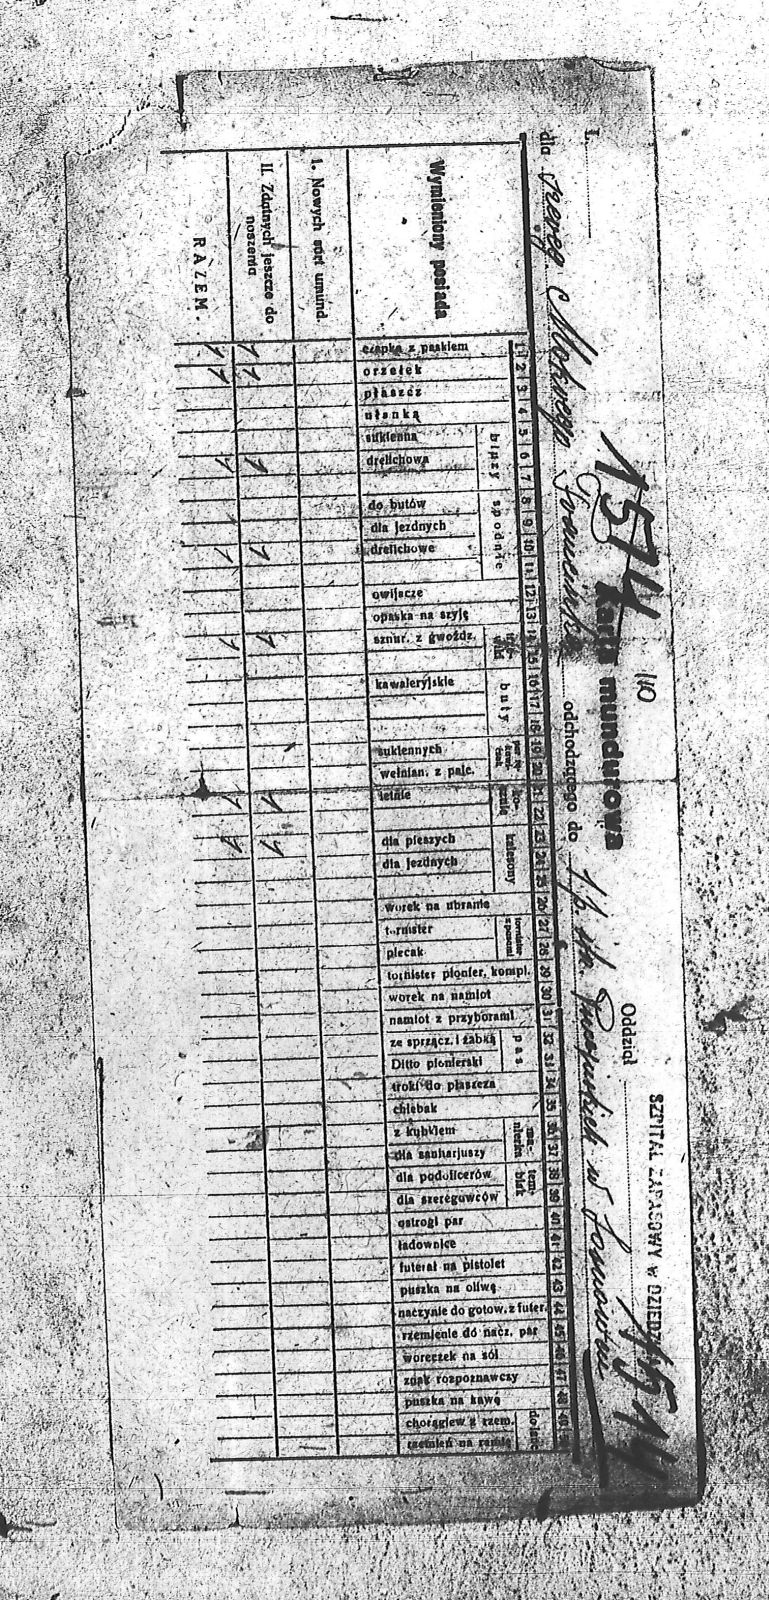 1574
110
Karta mundurowa
Oddział
SZPITAL ZAPASOWY w
1514
I.
dla szereg. odchodzącego do w
Wymieniony posiada
1. Nowych sort umund.
II. Zdatnych jeszcze do noszenia
RAZEM.
1 czapka z paskiem 1 1
2 orzełek 1 1
3 płaszcz
4 ułanka
bluzy
5 sukienna
6 drelichowa 1 1
7
spodnie
8 do butów
9 dla jezdnych
10 drelichowe 1 1
11
12 owijacze
13 opaska na szyję
14 sznur. z gwoźdz. 1 1
15
buty
16 kawaleryjskie
17
18
19 sukiennych
20 wełnian. z palc.
21 letnie 1 1
22
kalesony
23 dla pieszych 1 1
24 dla jezdnych
25
26 worek na ubranie
27 tornister
28 plecak
29 tornister pionier. kompl.
30 worek na namiot
31 namiot z przyborami
pas
32 ze sprzącz. i żabką
33 Ditto pionierski
34 troki do płaszcza
35 chlebak
menażka
36 z kubkiem
37 dla sanitarjuszy
temblak
38 dla podoficerów
39 dla szeregowców
40 ostrogi par
41 ładownice
42 futerał na pistolet
43 puszka na oliwę
44 naczynie do gotow. z futer.
45 rzemienie do nacz. par
46 woreczek na sól
47 znak rozpoznawczy
48 puszka na kawę
do lanc
49 chorągiew z rzem.
50 rzemień na ramię